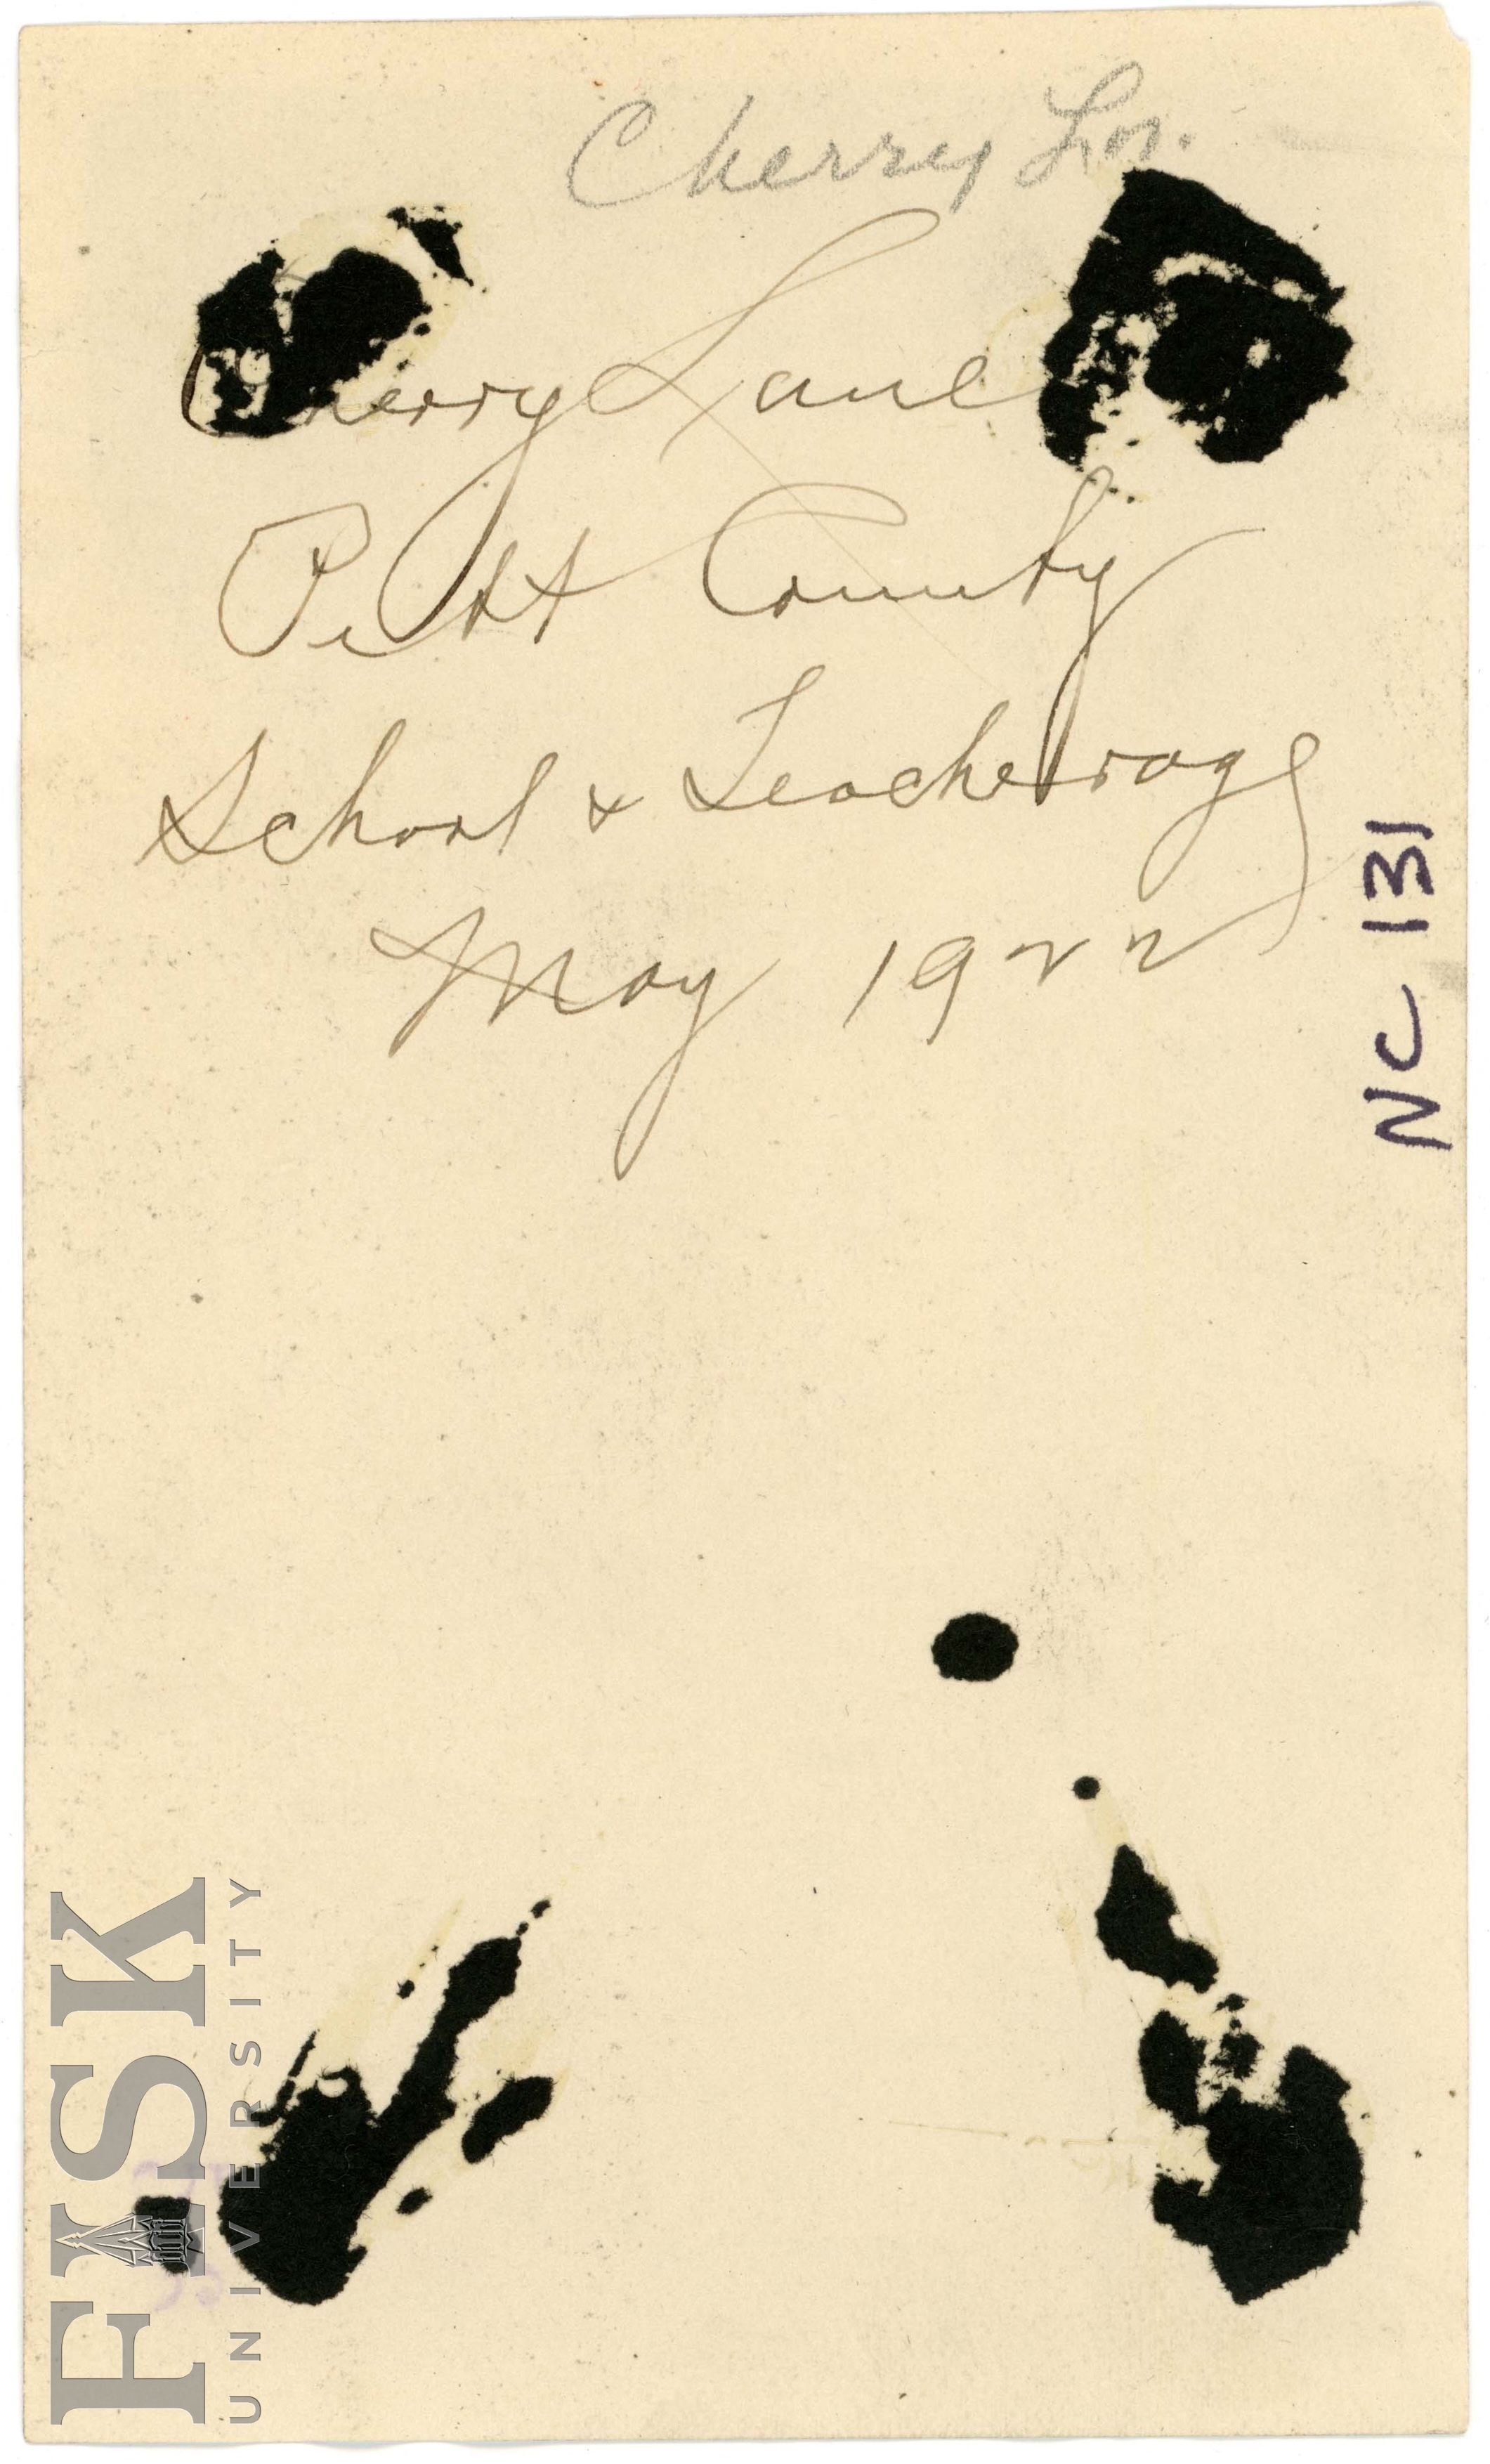 Cherry Ln.
Cherry Lane
Pitt County
School & Teacherage
May 1922
NC 131
FISK
UNIVERSITY